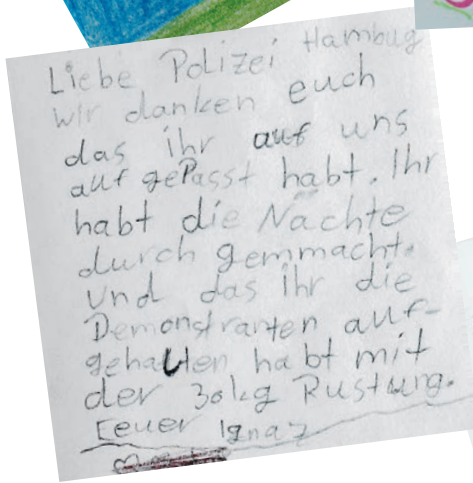 Liebe Polizei Hambug
wir danken euch
das ihr auf uns
auf gePasst habt. Ihr
habt die Nächte
durch gemmacht.
Und das ihr die
Demonstranten auf-
gehalten habt mit
der 30kg Rustung.
Eeuer Ignaz